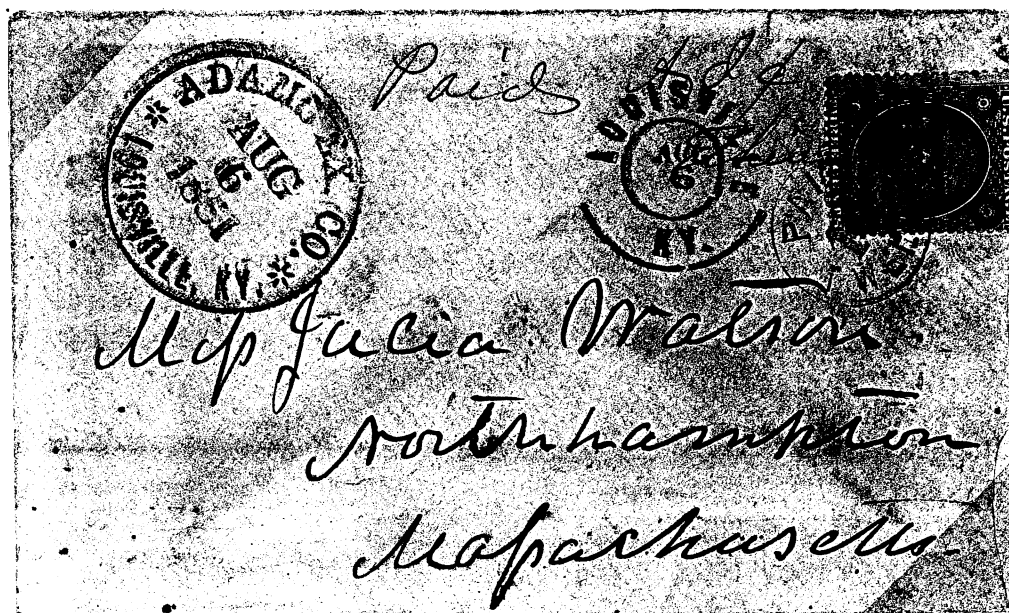 ADAMS EX. CO. LOUISVILLE, KY.
AUG
6
1861
Paid
LOUISVILLE
AUG
6
KY.
Miss Julia Watson
Northhampton
Massachusetts